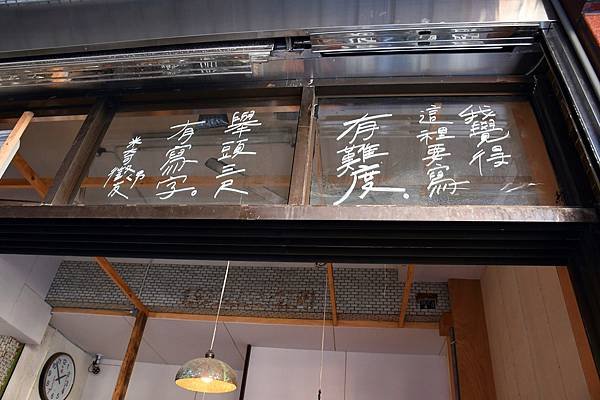 我覺得
這裡要寫
有難度。
舉頭三尺
有寫字。